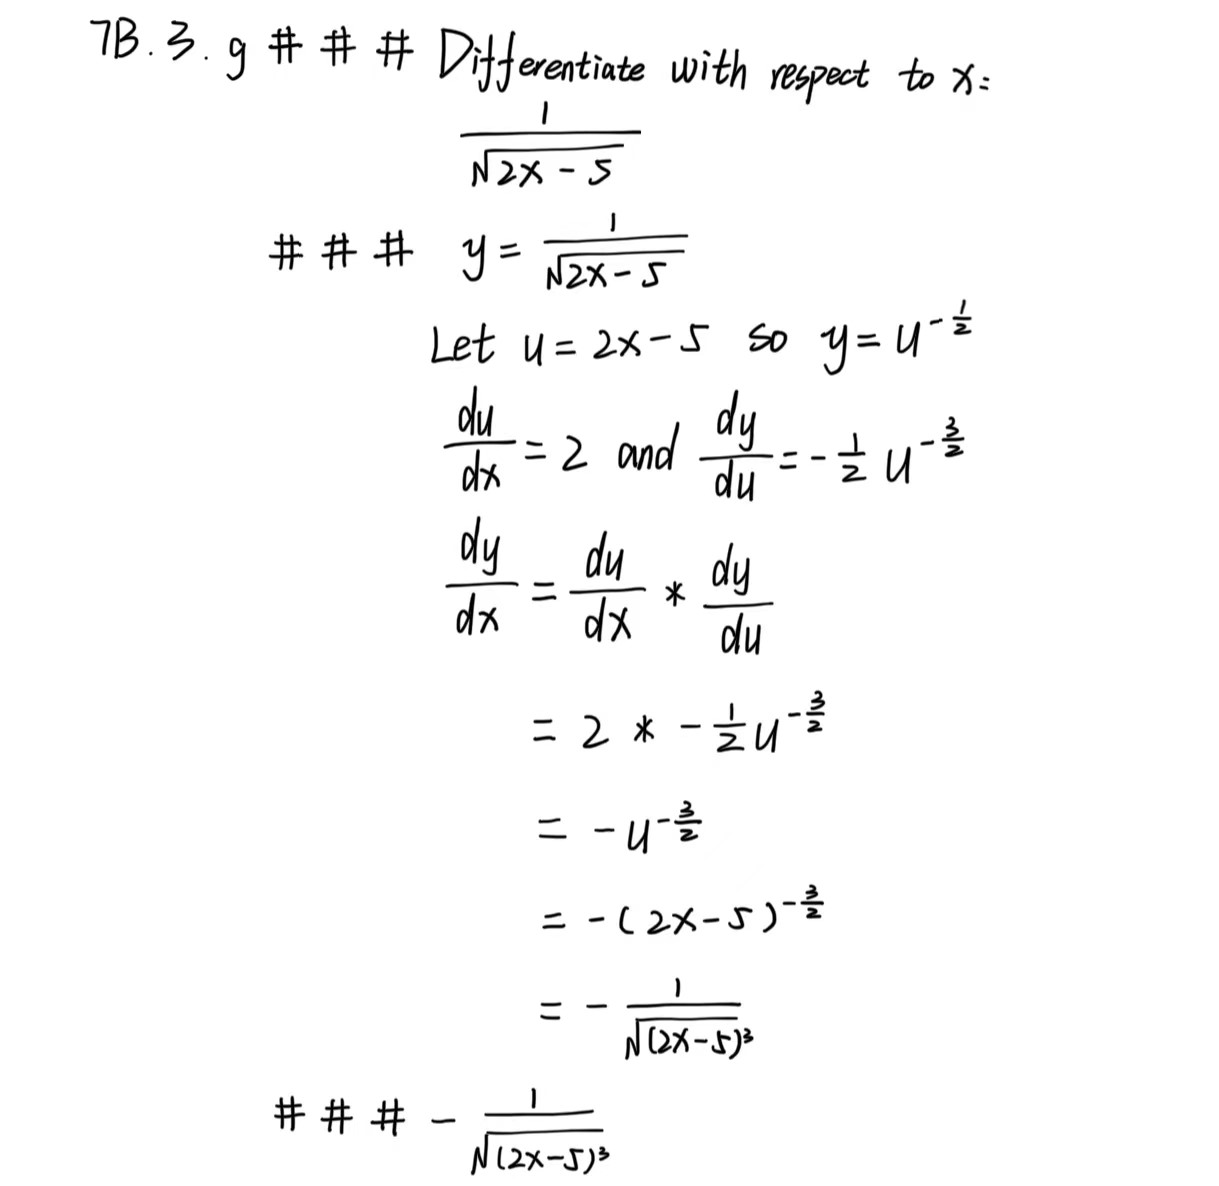 7B.3.g # # # Differentiate with respect to x:
1/√(2x-5)
# # # y = 1/√(2x-5)
Let u = 2x-5 so y = u^(-1/2)
du/dx = 2 and dy/du = -1/2 u^(-3/2)
dy/dx = du/dx * dy/du
= 2 * -1/2 u^(-3/2)
= -u^(-3/2)
= -(2x-5)^(-3/2)
= - 1/√((2x-5)³)
# # # - 1/√((2x-5)³)